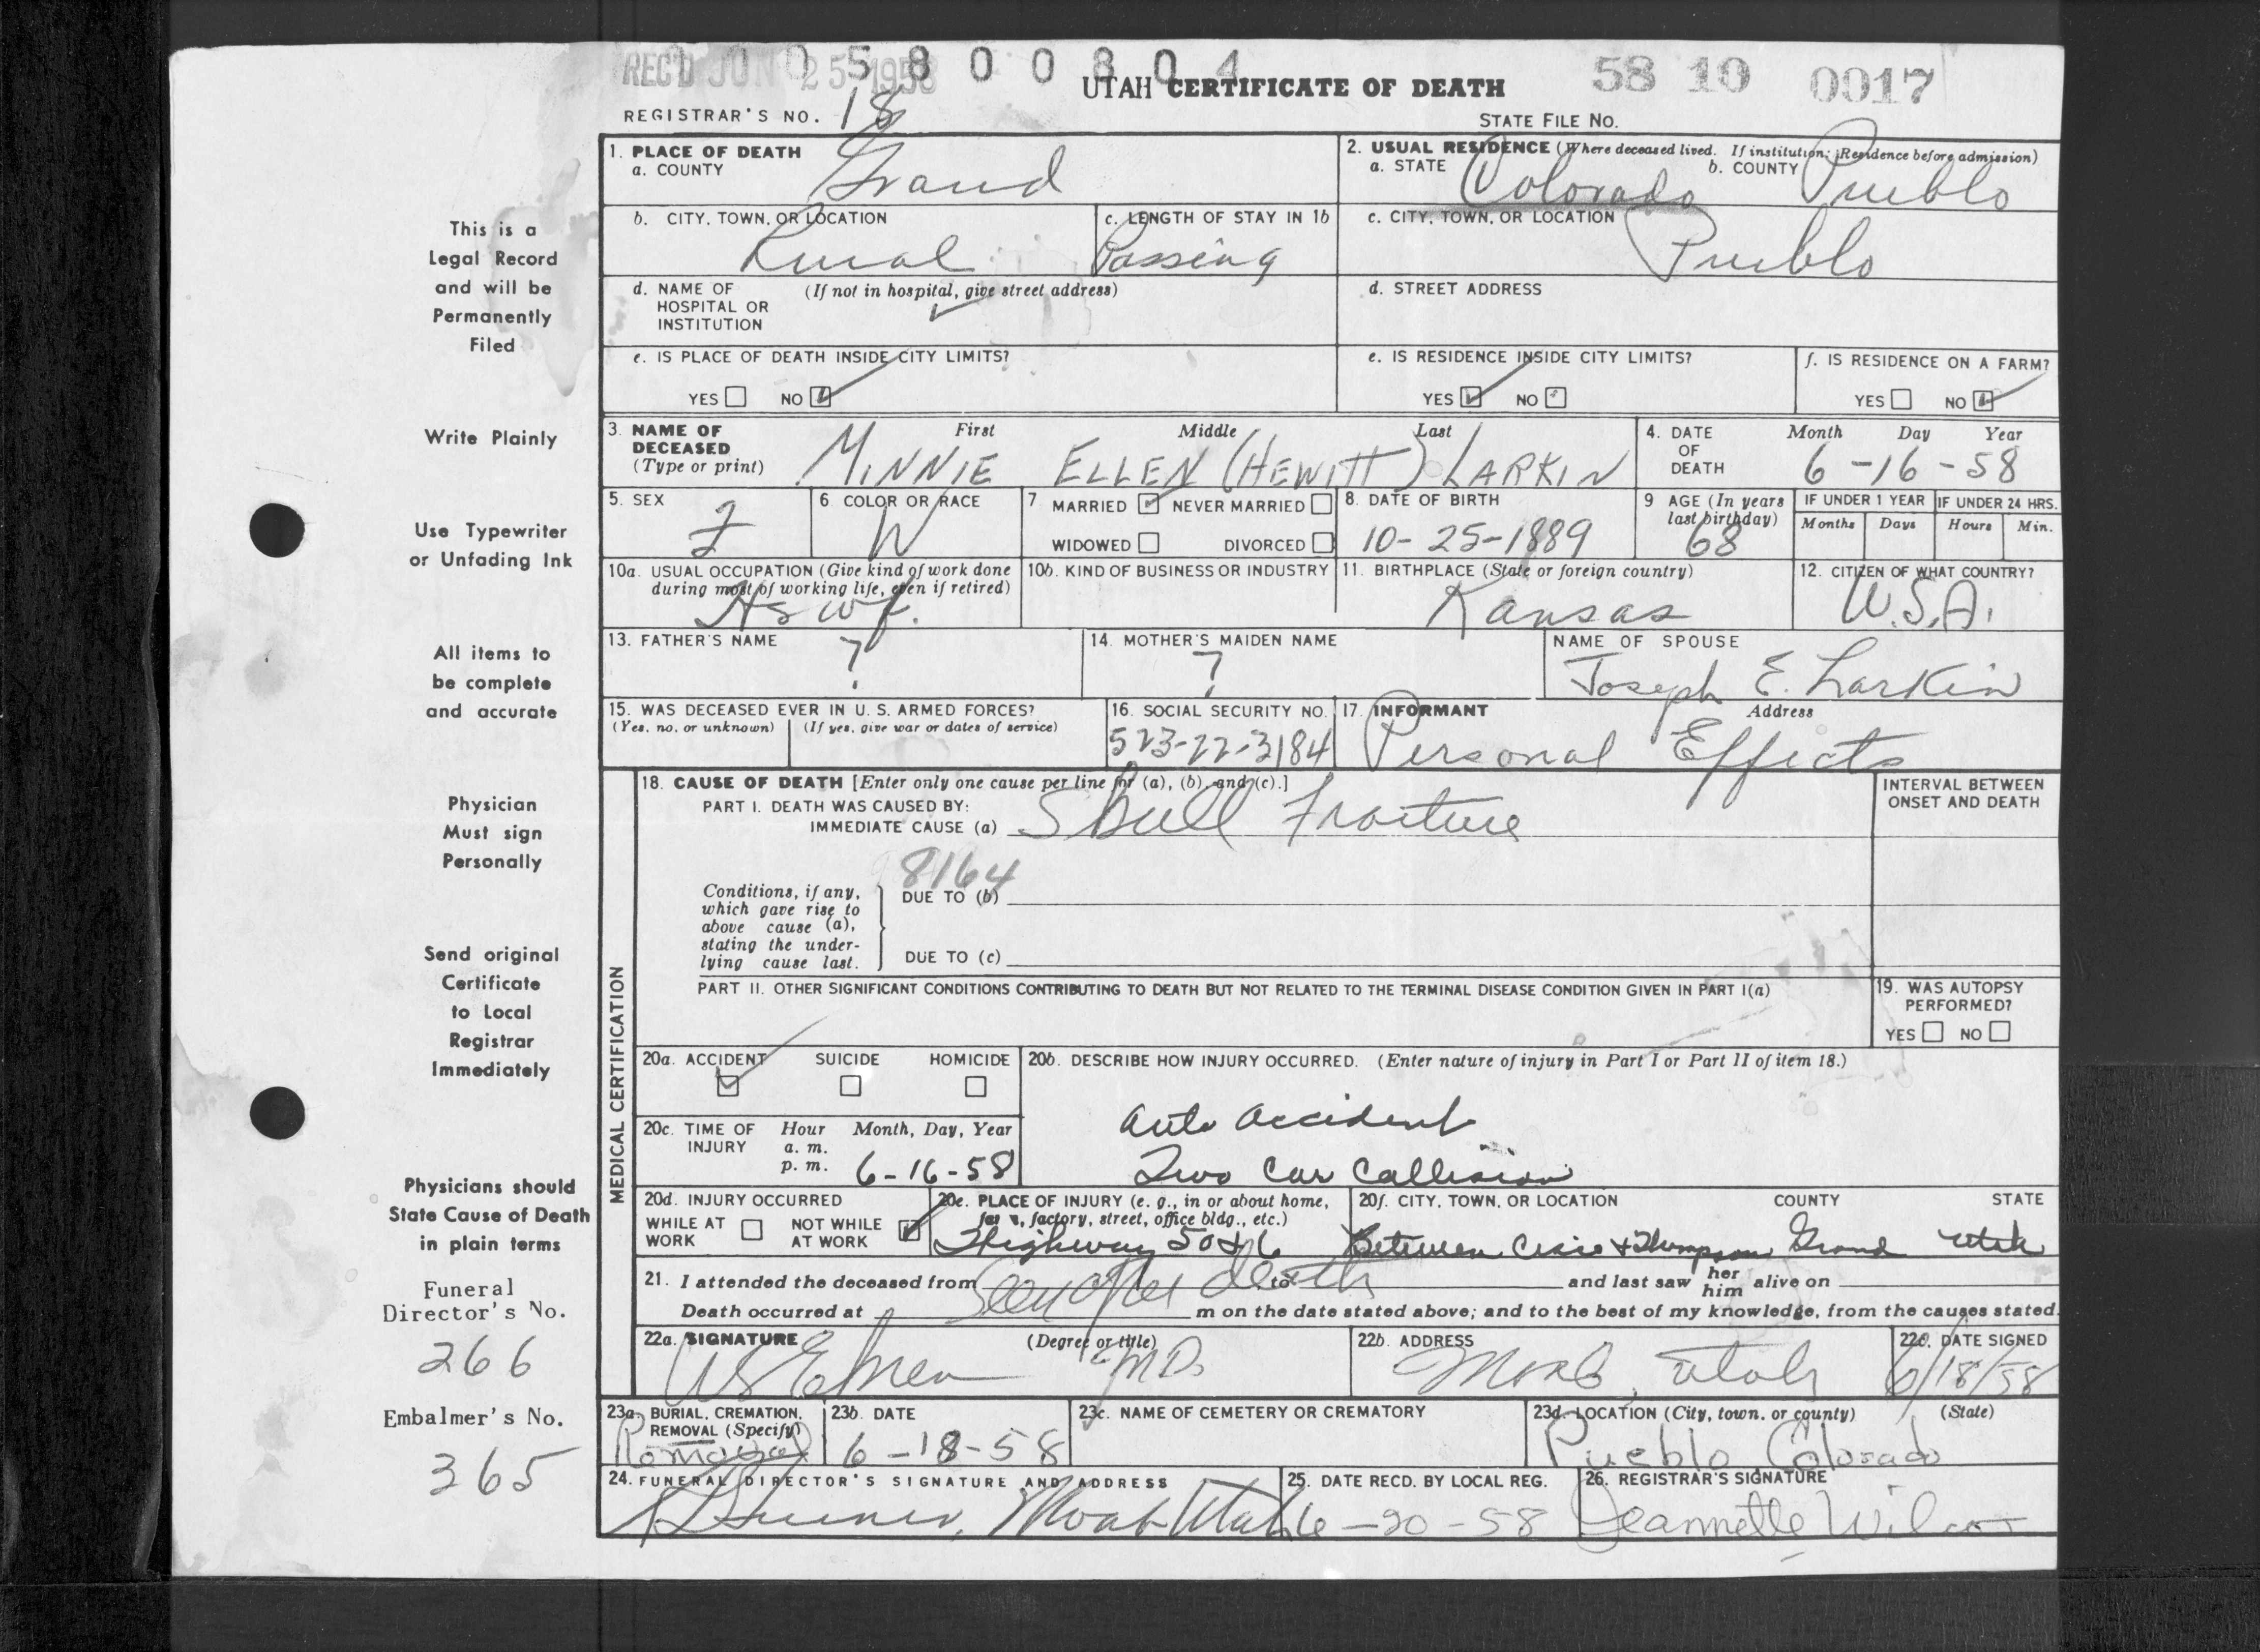 REC'D JUN 25 1958
0 0 5 8 0 0 8 0 4
58 10 0017
UTAH CERTIFICATE OF DEATH
REGISTRAR'S NO. 18
STATE FILE NO.
1. PLACE OF DEATH
a. COUNTY Grand
2. USUAL RESIDENCE (Where deceased lived. If institution: Residence before admission)
a. STATE Colorado b. COUNTY Pueblo
b. CITY, TOWN, OR LOCATION Rural
c. LENGTH OF STAY IN 1b Passing
c. CITY, TOWN, OR LOCATION Pueblo
d. NAME OF HOSPITAL OR INSTITUTION (If not in hospital, give street address)
d. STREET ADDRESS
e. IS PLACE OF DEATH INSIDE CITY LIMITS?
YES NO
e. IS RESIDENCE INSIDE CITY LIMITS?
YES NO
f. IS RESIDENCE ON A FARM?
YES NO
3. NAME OF DECEASED (Type or print) First Middle Last
MINNIE ELLEN (HEWITT) LARKIN
4. DATE OF DEATH Month Day Year
6-16-58
5. SEX F
6 COLOR OR RACE W
7 MARRIED NEVER MARRIED
WIDOWED DIVORCED
8. DATE OF BIRTH 10-25-1889
9 AGE (In years last birthday) 68
IF UNDER 1 YEAR Months Days
IF UNDER 24 HRS. Hours Min.
10a. USUAL OCCUPATION (Give kind of work done during most of working life, even if retired)
Hswf.
10b. KIND OF BUSINESS OR INDUSTRY
11. BIRTHPLACE (State or foreign country)
Kansas
12. CITIZEN OF WHAT COUNTRY?
U.S.A.
13. FATHER'S NAME ?
14. MOTHER'S MAIDEN NAME ?
NAME OF SPOUSE
Joseph E. Larkin
15. WAS DECEASED EVER IN U. S. ARMED FORCES?
(Yes, no, or unknown) (If yes, give war or dates of service)
16. SOCIAL SECURITY NO.
523-22-3184
17. INFORMANT Address
Personal Effects
MEDICAL CERTIFICATION
18. CAUSE OF DEATH [Enter only one cause per line for (a), (b), and (c).]
PART I. DEATH WAS CAUSED BY:
IMMEDIATE CAUSE (a) Skull Fracture
INTERVAL BETWEEN ONSET AND DEATH
8164
Conditions, if any, which gave rise to above cause (a), stating the underlying cause last.
DUE TO (b)
DUE TO (c)
PART II. OTHER SIGNIFICANT CONDITIONS CONTRIBUTING TO DEATH BUT NOT RELATED TO THE TERMINAL DISEASE CONDITION GIVEN IN PART I(a)
19. WAS AUTOPSY PERFORMED?
YES NO
20a. ACCIDENT SUICIDE HOMICIDE
20b. DESCRIBE HOW INJURY OCCURRED. (Enter nature of injury in Part I or Part II of item 18.)
Auto accident
Two Car Collision
20c. TIME OF INJURY Hour a. m. p. m. Month, Day, Year
6-16-58
20d. INJURY OCCURRED
WHILE AT WORK NOT WHILE AT WORK
20e. PLACE OF INJURY (e. g., in or about home, farm, factory, street, office bldg., etc.)
Highway 50 & 6
20f. CITY, TOWN, OR LOCATION COUNTY STATE
Between Cisco & Thompson Grand Utah
21. I attended the deceased from Seen after death to and last saw her him alive on
Death occurred at m on the date stated above; and to the best of my knowledge, from the causes stated.
22a. SIGNATURE (Degree or title)
M.D.
22b. ADDRESS
Moab, Utah
22c. DATE SIGNED
6/18/58
23a. BURIAL, CREMATION, REMOVAL (Specify)
Removal
23b. DATE
6-18-58
23c. NAME OF CEMETERY OR CREMATORY
23d. LOCATION (City, town, or county) (State)
Pueblo Colorado
24. FUNERAL DIRECTOR'S SIGNATURE AND ADDRESS
Moab Utah
25. DATE RECD. BY LOCAL REG.
6-20-58
26. REGISTRAR'S SIGNATURE
Jeannette Wilcox
This is a
Legal Record
and will be
Permanently
Filed
Write Plainly
Use Typewriter
or Unfading Ink
All items to
be complete
and accurate
Physician
Must sign
Personally
Send original
Certificate
to Local
Registrar
Immediately
Physicians should
State Cause of Death
in plain terms
Funeral
Director's No.
266
Embalmer's No.
365